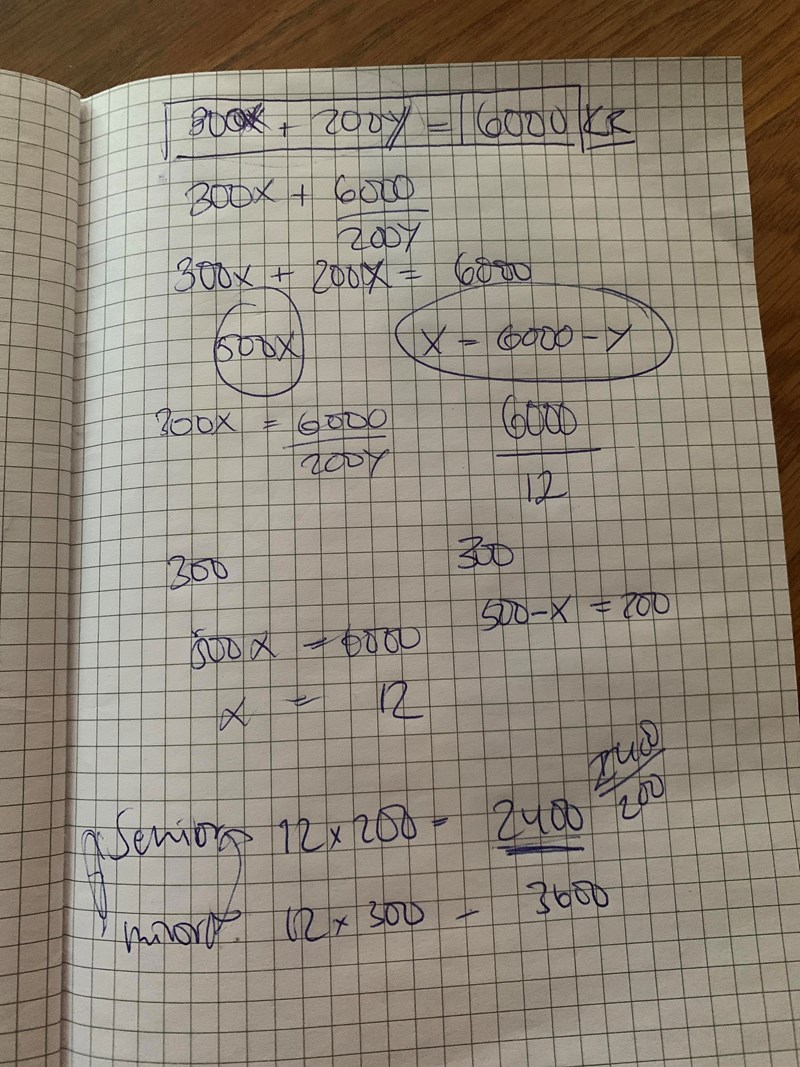 300x + 200y = 6000 KR
300x + 6000
200y
300x + 200x = 6000
500x x = 6000 - y
300x = 6000 6000
200y 12
300 300
500 - x = 200
500x = 6000
x = 12
240
200
Senior 12 x 200 = 2400
12 x 300 - 3600